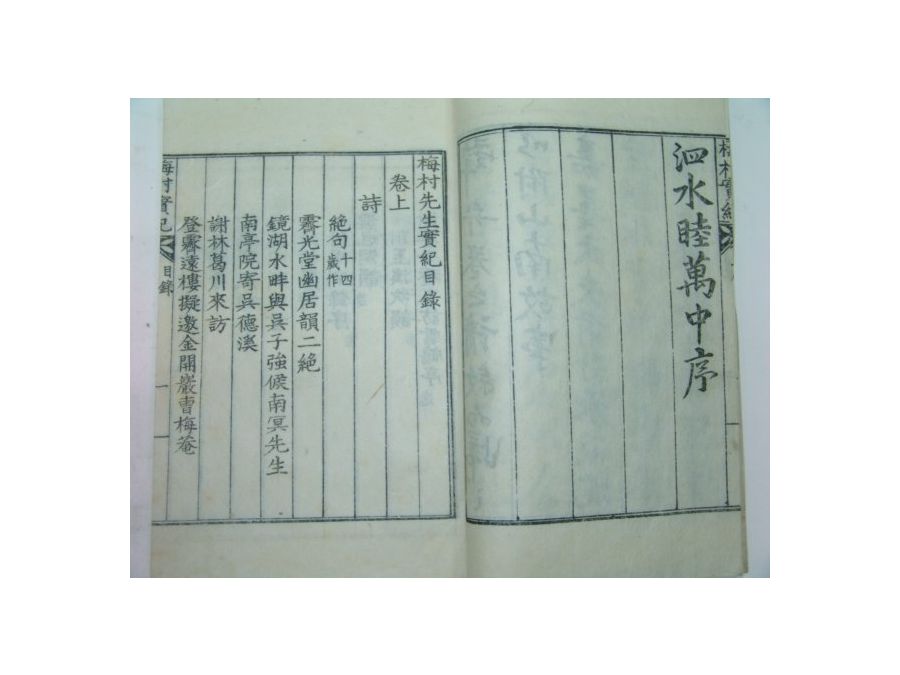 泗水睦萬中序
梅村先生實紀目錄
卷上
詩
絶句十四歲作
霽光堂幽居韻二絶
鏡湖水畔與吳子強候南冥先生
南亭院寄吳德溪
謝林葛川來訪
登霽遠樓擬邀金開巖曹梅菴
梅村實紀 目錄 一